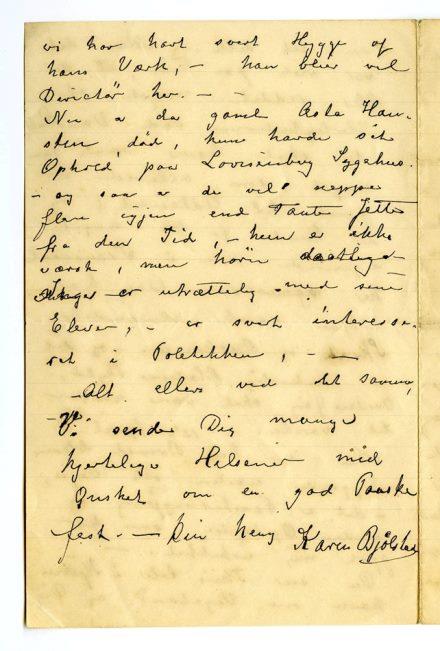 vi har havt svært Hygge af
hans Værk, - han bliver vel
Director her. - -
Nu er da gamle Asta Han-
sten død, hun havde sit
Ophold paa Lovisenberg Sygehus.
- og saa er de vel neppe
flere igjen end Tante Jette
fra den Tid, - hun er ikke
værst, men
er utrættelig med sine
Elever, - er svært interesse-
ret i Politikken, - -
- Alt ellers ved det samme,
- Vi sender Dig mange
hjertelige Hilsener med
Ønsket om en god Paaske
fest. - Din heng
Karen Bjølstad